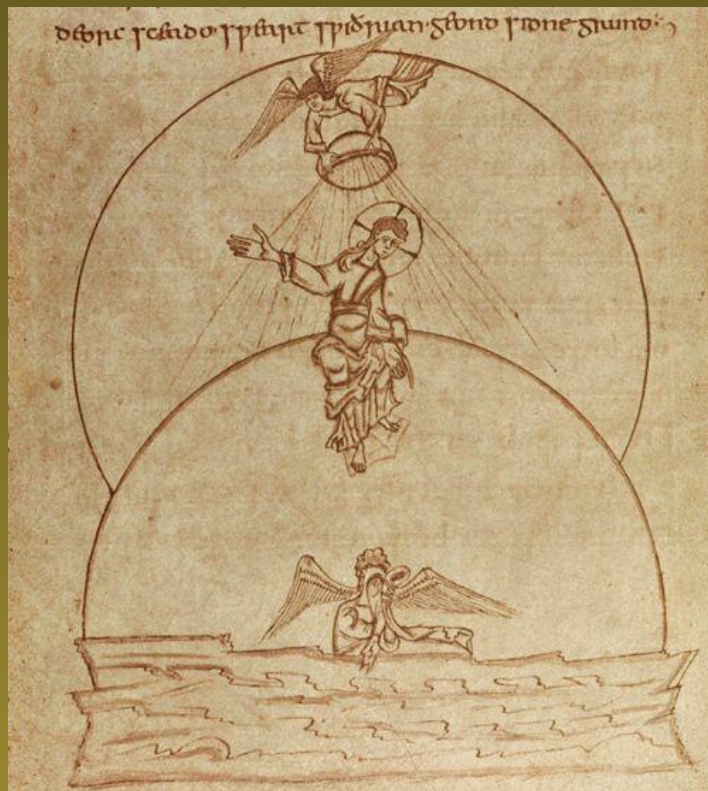 deorc sceado·sƿeart sƿiðrian·geond sidne grund:,